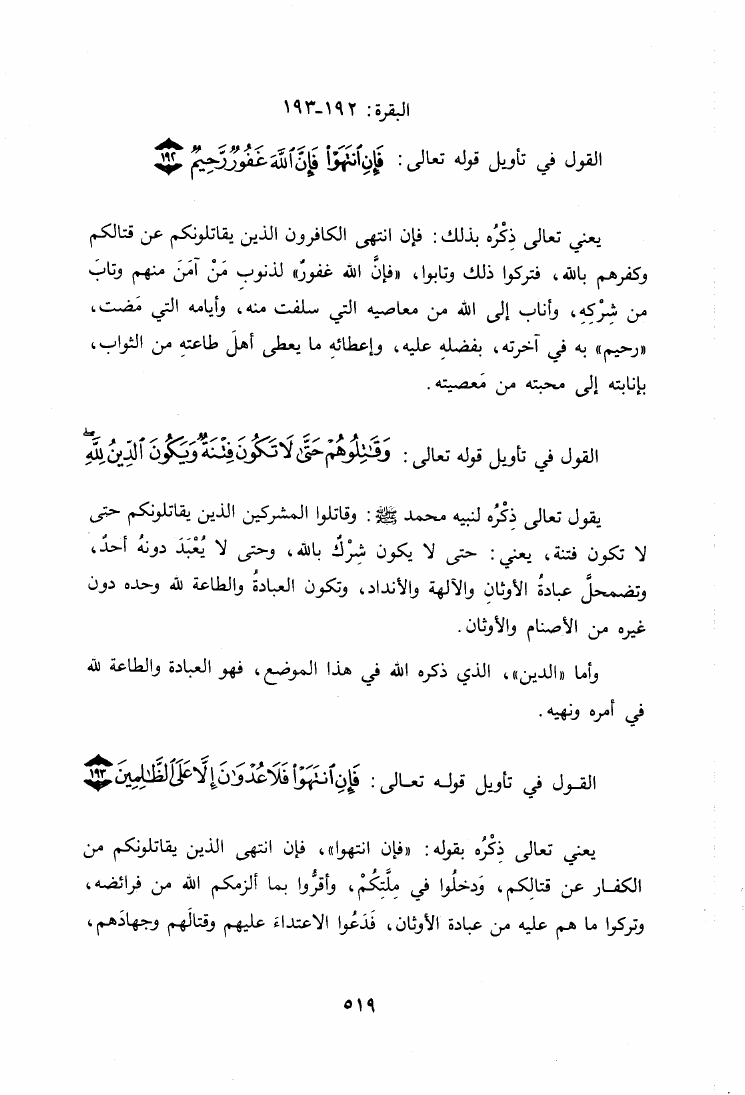 البقرة: ١٩٢-١٩٣
القول في تأويل قوله تعالى: فَإِنِ ٱنتَهَوْا۟ فَإِنَّ ٱللَّهَ غَفُورٌ رَّحِيمٌ ١٩٢
يعني تعالى ذِكْرُه بذلك: فإن انتهى الكافرون الذين يقاتلونكم عن قتالكم
وكفرهم بالله، فتركوا ذلك وتابوا، «فإنَّ الله غفورٌ» لذنوبِ مَنْ آمَنَ منهم وتابَ
من شِرْكِهِ، وأناب إلى الله من معاصيه التي سلفت منه، وأيامه التي مَضت،
«رحيم» به في آخرته، بفضلهِ عليه، وإعطائهِ ما يعطى أهلَ طاعتهِ من الثواب،
بإنابته إلى محبته من مَعصيته.
القول في تأويل قوله تعالى: وَقَـٰتِلُوهُمْ حَتَّىٰ لَا تَكُونَ فِتْنَةٌ وَيَكُونَ ٱلدِّينُ لِلَّهِ ۖ
يقول تعالى ذِكْرُه لنبيه محمد ﷺ: وقاتلوا المشركين الذين يقاتلونكم حتى
لا تكون فتنة، يعني: حتى لا يكون شِرْكٌ بالله، وحتى لا يُعْبَدَ دونهُ أحدٌ،
وتضمحلَّ عبادةُ الأوثانِ والآلهة والأنداد، وتكون العبادةُ والطاعة لله وحده دون
غيره من الأصنام والأوثان.
وأما «الدين»، الذي ذكره الله في هذا الموضع، فهو العبادة والطاعة لله
في أمره ونهيه.
القول في تأويل قوله تعالى: فَإِنِ ٱنتَهَوْا۟ فَلَا عُدْوَٰنَ إِلَّا عَلَى ٱلظَّـٰلِمِينَ ١٩٣
يعني تعالى ذِكْرُه بقوله: «فإن انتهوا»، فإن انتهى الذين يقاتلونكم من
الكفار عن قتالِكم، وَدخلُوا في مِلَّتِكُمْ، وأقرُّوا بما ألزمكم الله من فرائضه،
وتركوا ما هم عليه من عبادة الأوثان، فَدَعُوا الاعتداءَ عليهم وقتالَهم وجهادَهم،
٥١٩